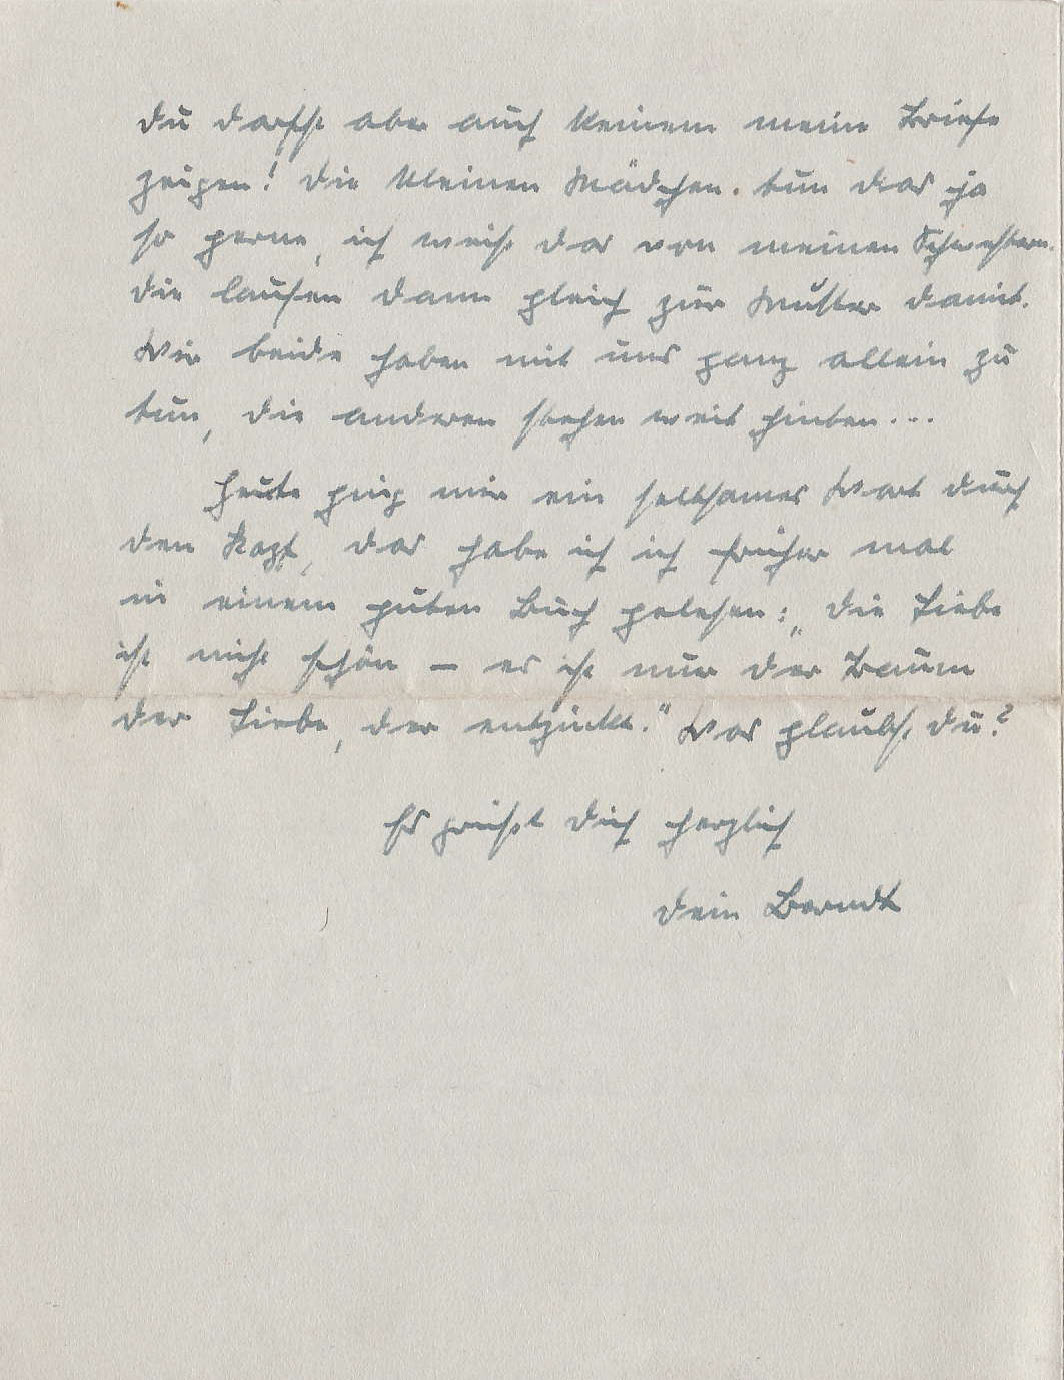 Du darfst aber auch keinem meine Briefe
zeigen! Die kleinen Mädchen tun das ja
so gerne, ich weiß das von meinen Schwestern.
Die laufen dann gleich zur Mutter damit.
Wir beide haben mit uns ganz allein zu
tun, die anderen stehen weit hinten...
Heute ging mir ein seltsames Wort durch
den Kopf, das habe ich ich früher mal
in einem guten Buch gelesen: „Die Liebe
ist nicht schön — es ist nur der Traum
der Liebe, der entzückt." Was glaubst Du?
Es grüßt Dich herzlich
Dein Berndt